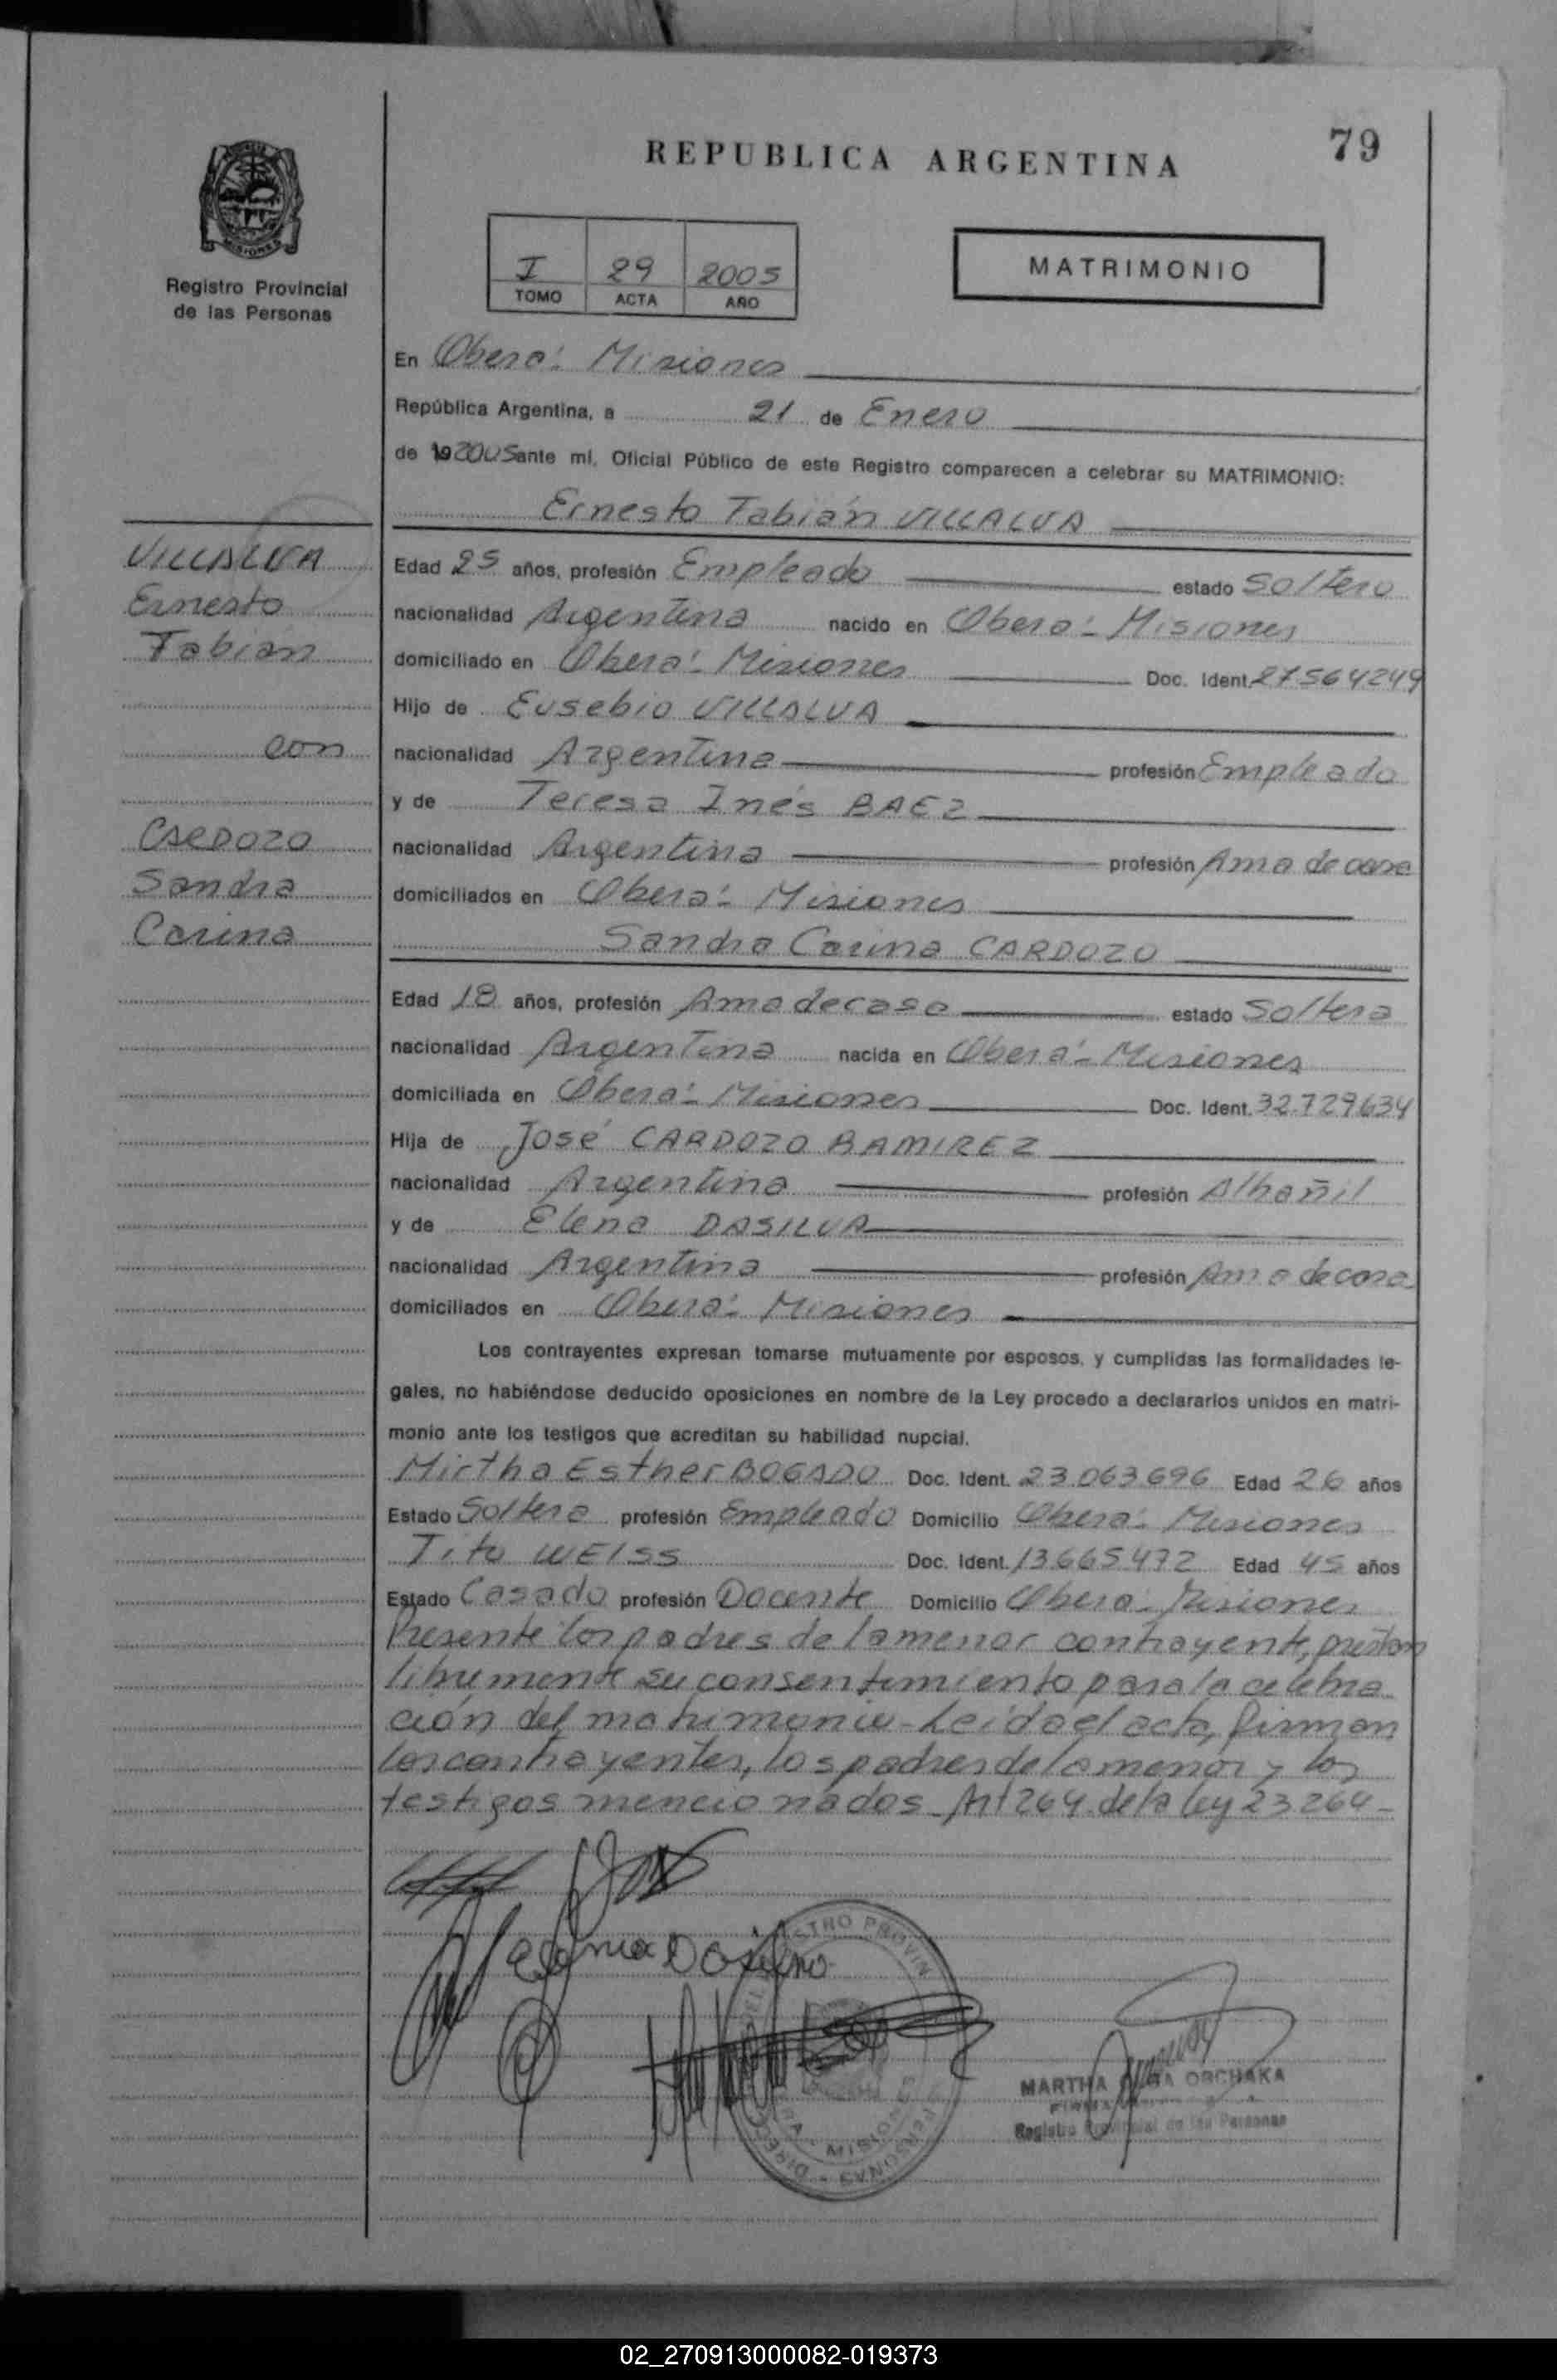 REPUBLICA ARGENTINA
79
MISIONES
Registro Provincial
de las Personas
I 29 2005
TOMO ACTA AÑO
MATRIMONIO
En Oberá - Misiones
República Argentina, a 21 de Enero
de 192005 ante mí, Oficial Público de este Registro comparecen a celebrar su MATRIMONIO:
Ernesto Fabián VILLALVA
VILLALVA
Ernesto
Fabián
con
CARDOZO
Sandra
Carina
Edad 25 años, profesión Empleado estado Soltero
nacionalidad Argentina nacido en Oberá - Misiones
domiciliado en Oberá - Misiones Doc. Ident. 27564249
Hijo de Eusebio VILLALVA
nacionalidad Argentina profesión Empleado
y de Teresa Inés BAEZ
nacionalidad Argentina profesión Ama de casa
domiciliados en Oberá - Misiones
Sandra Carina CARDOZO
Edad 18 años, profesión Ama de casa estado Soltera
nacionalidad Argentina nacida en Oberá - Misiones
domiciliada en Oberá - Misiones Doc. Ident. 32.729634
Hija de José CARDOZO RAMIREZ
nacionalidad Argentina profesión Albañil
y de Elena DASILVA
nacionalidad Argentina profesión Ama de casa
domiciliados en Oberá - Misiones
Los contrayentes expresan tomarse mutuamente por esposos, y cumplidas las formalidades le-
gales, no habiéndose deducido oposiciones en nombre de la Ley procedo a declararlos unidos en matri-
monio ante los testigos que acreditan su habilidad nupcial.
Mirtha Esther BOGADO Doc. Ident. 23.063.696 Edad 26 años
Estado Soltera profesión Empleado Domicilio Oberá - Misiones
Tito WEISS Doc. Ident. 13.665.472 Edad 45 años
Estado Casado profesión Docente Domicilio Oberá - Misiones
Presente los padres de la menor contrayente, prestan
libremente su consentimiento para la celebra
ción del matrimonio - Leída el acta, firman
los contrayentes, los padres de la menor y los
testigos mencionados - Art 264 de la Ley 23264 -
MARTHA ORCHAKA
Registro Provincial de las Personas
02_270913000082-019373